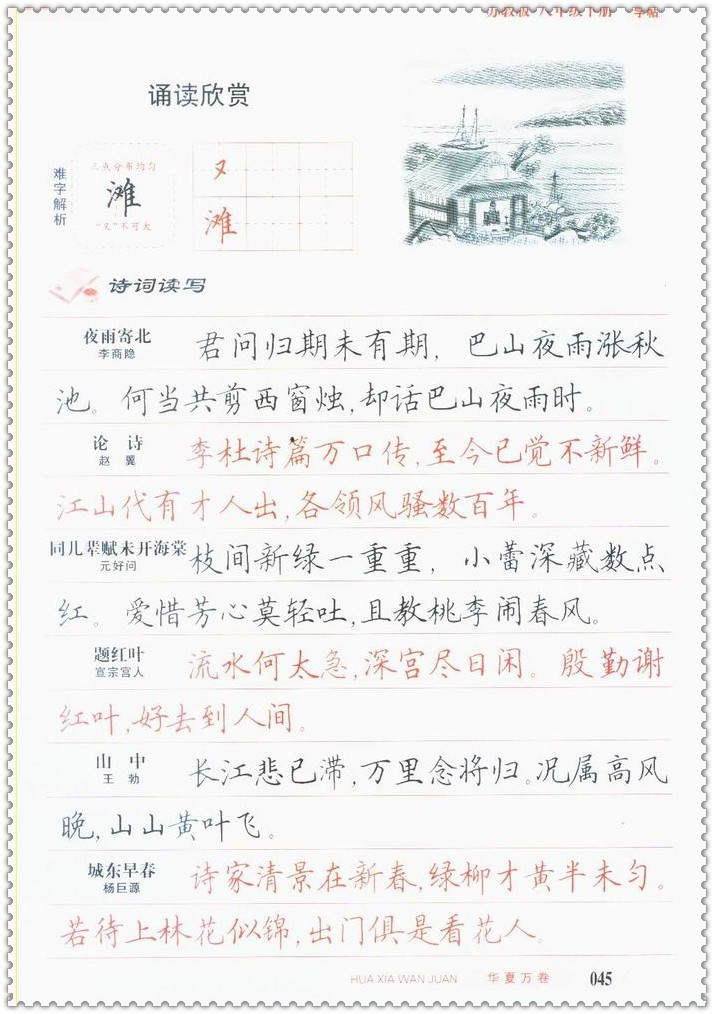 苏教版 八年级下册 字帖
诵读欣赏
难字解析
三点分布均匀
滩
“又”不可大
又
滩
诗词读写
夜雨寄北
李商隐
君问归期未有期，巴山夜雨涨秋
池。何当共剪西窗烛，却话巴山夜雨时。
论 诗
赵 翼
李杜诗篇万口传，至今已觉不新鲜。
江山代有才人出，各领风骚数百年。
同儿辈赋未开海棠
元好问
枝间新绿一重重，小蕾深藏数点
红。爱惜芳心莫轻吐，且教桃李闹春风。
题红叶
宣宗宫人
流水何太急，深宫尽日闲。殷勤谢
红叶，好去到人间。
山 中
王 勃
长江悲已滞，万里念将归。况属高风
晚，山山黄叶飞。
城东早春
杨巨源
诗家清景在新春，绿柳才黄半未匀。
若待上林花似锦，出门俱是看花人。
HUA XIA WAN JUAN 华夏万卷 045